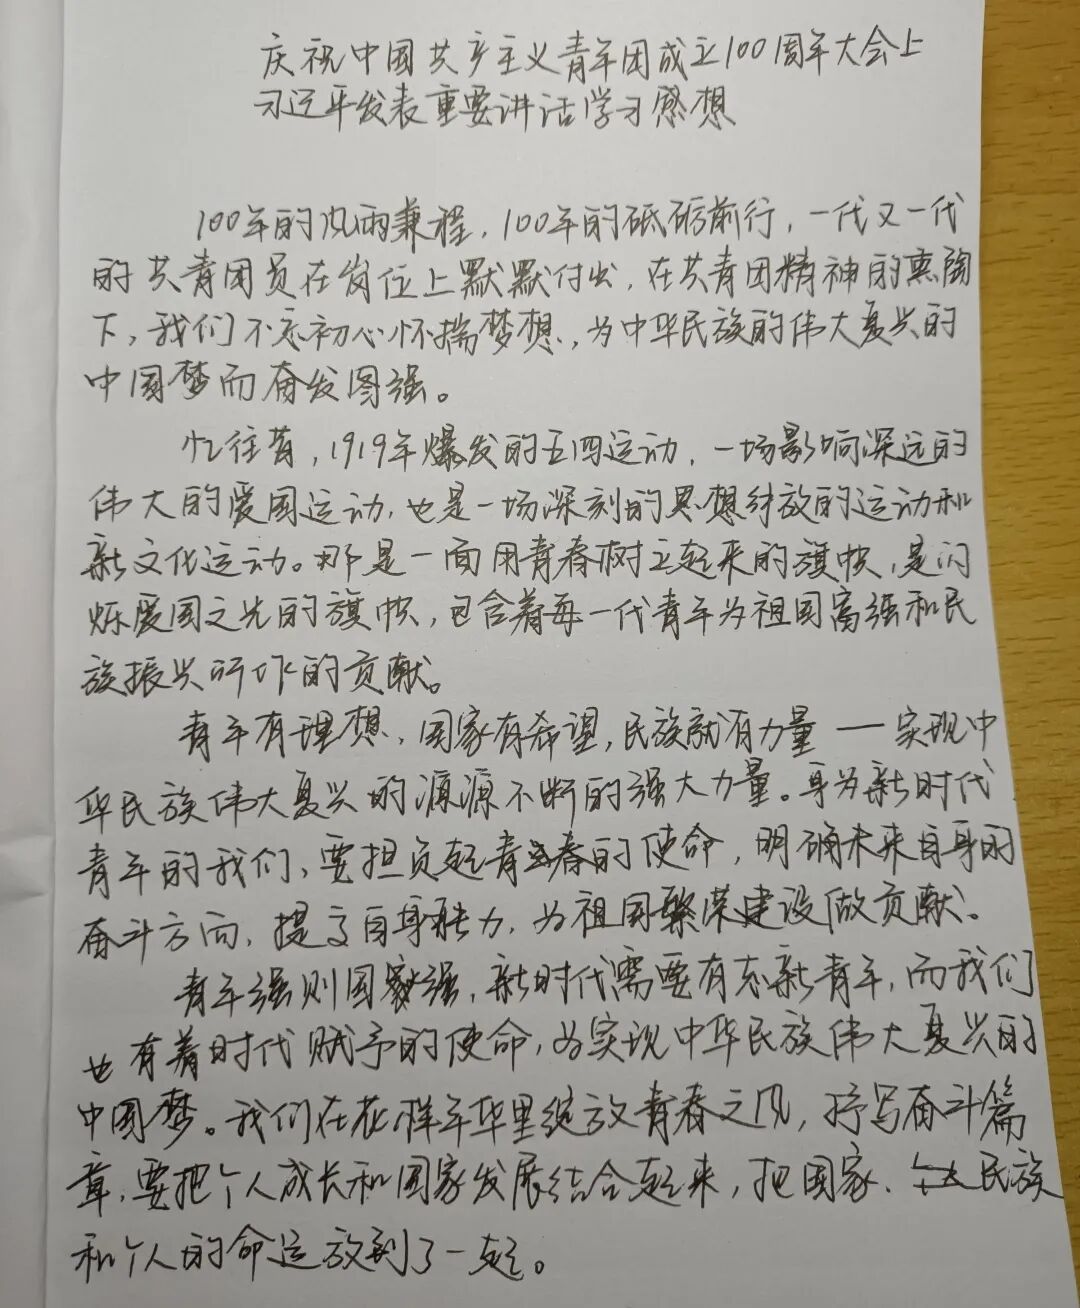 庆祝中国共产主义青年团成立100周年大会上
习近平发表重要讲话学习感想
100年的风雨兼程，100年的砥砺前行，一代又一代
的共青团员在岗位上默默付出，在共青团精神的熏陶
下，我们不忘初心怀揣梦想，为中华民族的伟大复兴的
中国梦而奋发图强。
忆往昔，1919年爆发的五四运动，一场影响深远的
伟大的爱国运动，也是一场深刻的思想解放的运动和
新文化运动。那是一面用青春树立起来的旗帜，是闪
烁爱国之光的旗帜，包含着每一代青年为祖国富强和民
族振兴所作的贡献。
青年有理想，国家有希望，民族就有力量——实现中
华民族伟大复兴的源源不断的强大力量。身为新时代
青年的我们，要担负起青春的使命，明确未来自身的
奋斗方向，提高自身能力，为祖国繁荣建设做贡献。
青年强则国家强，新时代需要有志新青年，而我们
也有着时代赋予的使命，为实现中华民族伟大复兴的
中国梦。我们在花样年华里绽放青春之风，抒写奋斗篇
章，要把个人成长和国家发展结合起来，把国家、民族
和个人的命运放到了一起。